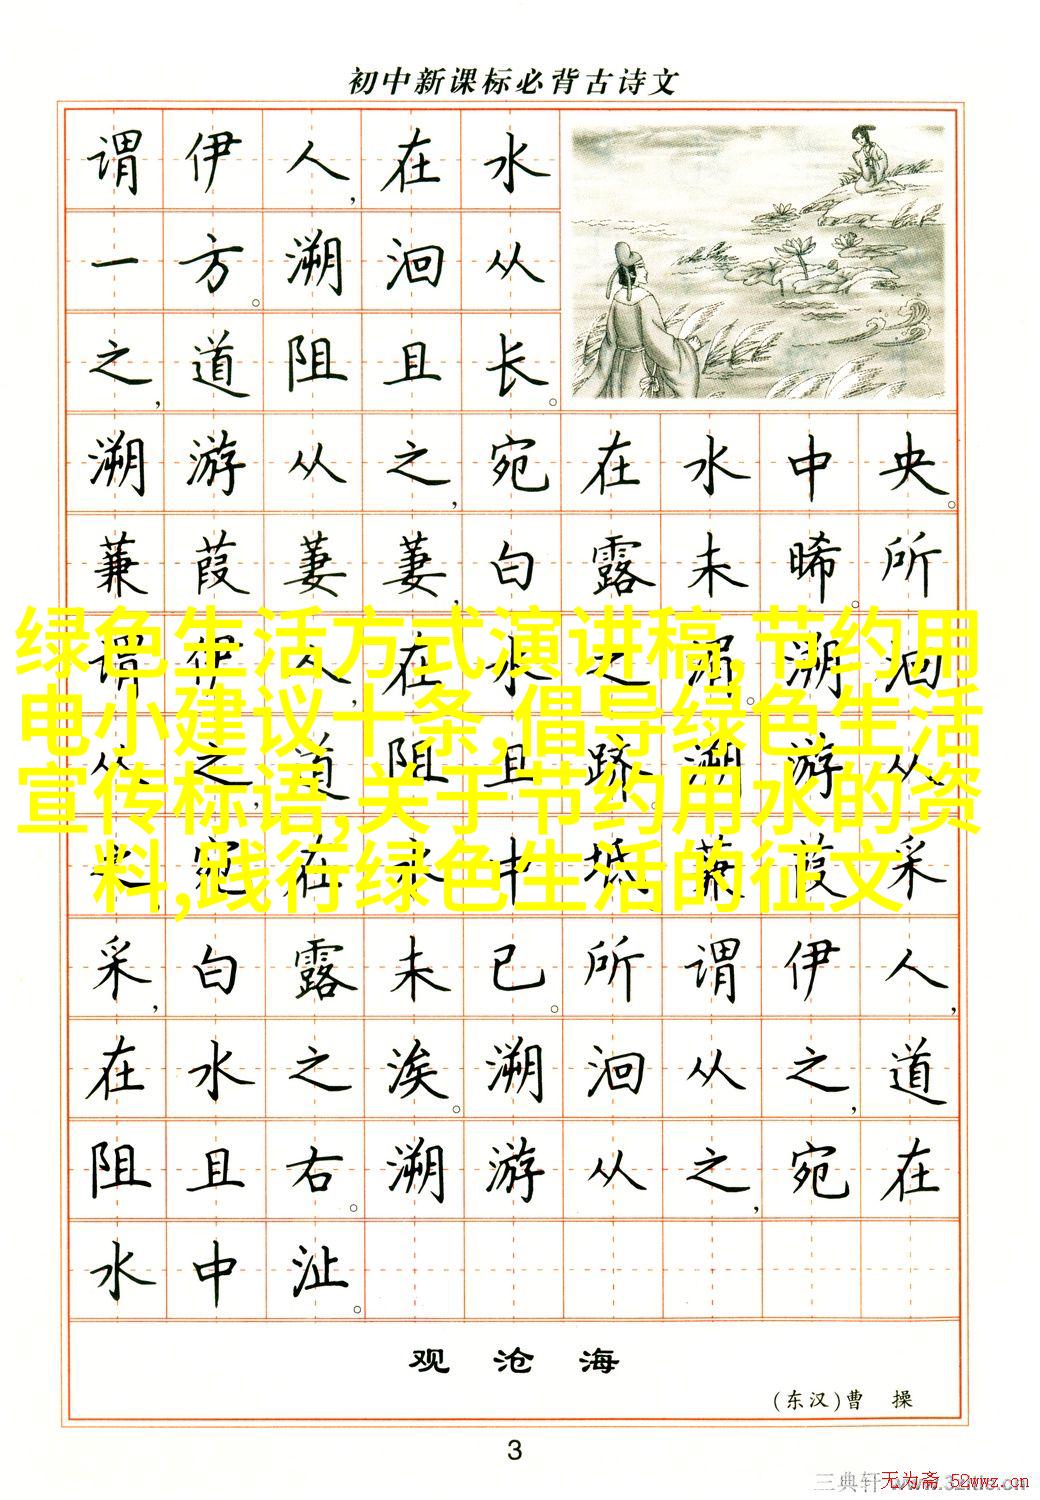 初中新课标必背古诗文
谓伊人,在水
一方。溯洄从
之,道阻且长。
溯游从之,宛在水中央。
蒹葭萋萋,白露未晞。所
谓伊人,在水之湄。溯洄
从之,道阻且跻。溯游从
之,宛在水中坻。蒹葭采
采,白露未已。所谓伊人,
在水之涘。溯洄从之,道
阻且右。溯游从之,宛在
水中沚。
绿色生活方式演讲稿,节约用
电小建议十条,倡导绿色生活
宣传标语,关于节约用水的资
料,践行绿色生活的征文
观沧海
(东汉)曹操
3
三典轩
无为斋 52wwz.cn